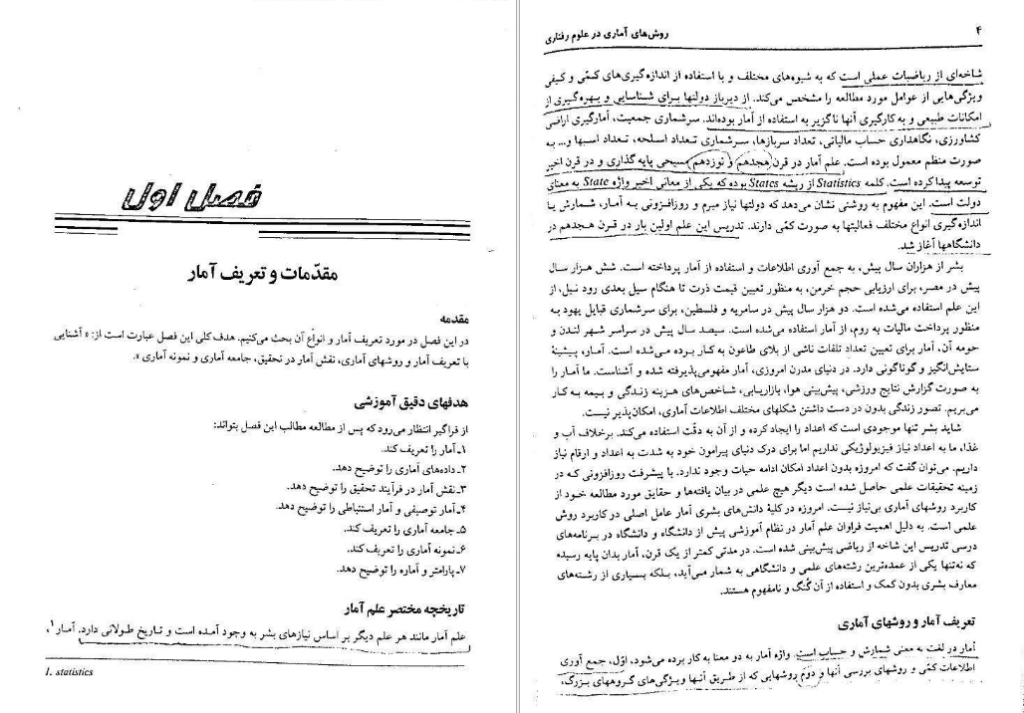 فصل اول
مقدّمات و تعریف آمار
مقدمه
در این فصل در مورد تعریف آمار و انواع آن بحث می‌کنیم. هدف کلی این فصل عبارت است از: « آشنایی
با تعریف آمار و روشهای آماری، نقش آمار در تحقیق، جامعه آماری و نمونه آماری ».
هدفهای دقیق آموزشی
از فراگیر انتظار می‌رود که پس از مطالعه مطالب این فصل بتواند:
۱ـ آمار را تعریف کند.
۲ـ داده‌های آماری را توضیح دهد.
۳ـ نقش آمار در فرآیند تحقیق را توضیح دهد.
۴ـ آمار توصیفی و آمار استنباطی را توضیح دهد.
۵ـ جامعه آماری را تعریف کند.
۶ـ نمونه آماری را تعریف کند.
۷ـ پارامتر و آماره را توضیح دهد.
تاریخچه مختصر علم آمار
علم آمار مانند هر علم دیگر بر اساس نیازهای بشر به وجود آمده است و تاریخ طولانی دارد. آمار۱،
1. statistics
۴ روش‌های آماری در علوم رفتاری
شاخه‌ای از ریاضیات عملی است که به شیوه‌های مختلف و با استفاده از اندازه‌گیری‌های کمّی و کیفی
ویژگی‌هایی از عوامل مورد مطالعه را مشخص می‌کند. از دیرباز دولتها برای شناسایی و بهره‌گیری از
امکانات طبیعی و به کارگیری آنها ناگزیر به استفاده از آمار بوده‌اند. سرشماری جمعیت، آمارگیری اراضی
کشاورزی، نگاهداری حساب مالیاتی، تعداد سربازها، سرشماری تعداد اسلحه، تعداد اسبها و... به
صورت منظم معمول بوده است. علم آمار در قرن هجدهم و نوزدهم مسیحی پایه گذاری و در قرن اخیر
توسعه پیدا کرده است. کلمه Statistics از ریشه States بوده که یکی از معانی اخیر واژه State به معنای
دولت است. این مفهوم به روشنی نشان می‌دهد که دولتها نیاز مبرم و روزافزونی به آمار، شمارش یا
اندازه‌گیری انواع مختلف فعالیتها به صورت کمّی دارند. تدریس این علم اولین بار در قرن هجدهم در
دانشگاهها آغاز شد.
بشر از هزاران سال پیش، به جمع آوری اطلاعات و استفاده از آمار پرداخته است. شش هزار سال
پیش در مصر، برای ارزیابی حجم خرمن، به منظور تعیین قیمت ذرت تا هنگام سیل بعدی رود نیل، از
این علم استفاده می‌شده است. دو هزار سال پیش در سامریه و فلسطین، برای سرشماری قبایل یهود به
منظور پرداخت مالیات به روم، از آمار استفاده می‌شده است. سیصد سال پیش در سراسر شهر لندن و
حومه آن، آمار برای تعیین تعداد تلفات ناشی از بلای طاعون به کار برده می‌شده است. آمار، پیشینهٔ
ستایش‌انگیز و گوناگونی دارد. در دنیای مدرن امروزی، آمار مفهومی‌پذیرفته شده و آشناست. ما آمار را
به صورت گزارش نتایج ورزشی، پیش‌بینی هوا، بازاریابی، شاخص‌های هزینه زندگی و بیمه به کار
می‌بریم. تصور زندگی بدون در دست داشتن شکلهای مختلف اطلاعات آماری، امکان‌پذیر نیست.
شاید بشر تنها موجودی است که اعداد را ایجاد کرده و از آن به دقّت استفاده می‌کند. برخلاف آب و
غذا، ما به اعداد نیاز فیزیولوژیکی نداریم اما برای درک دنیای پیرامون خود به شدت به اعداد و ارقام نیاز
داریم. می‌توان گفت که امروزه بدون اعداد امکان ادامه حیات وجود ندارد. با پیشرفت روزافزونی که در
زمینه تحقیقات علمی حاصل شده است دیگر هیچ علمی در بیان یافته‌ها و حقایق مورد مطالعه خود از
کاربرد روشهای آماری بی‌نیاز نیست. امروزه در کلیهٔ دانش‌های بشری آمار عامل اصلی در کاربرد روش
علمی است. به دلیل اهمیت فراوان علم آمار در نظام آموزشی پیش از دانشگاه و دانشگاه در برنامه‌های
درسی تدریس این شاخه از ریاضی پیش‌بینی شده است. در مدتی کمتر از یک قرن، آمار بدان پایه رسیده
که نه‌تنها یکی از عمده‌ترین رشته‌های علمی و دانشگاهی به شمار می‌آید، بلکه بسیاری از رشته‌های
معارف بشری بدون کمک و استفاده از آن گُنگ و نامفهوم هستند.
تعریف آمار و روشهای آماری
آمار در لغت به معنی شمارش و حساب است. واژه آمار به دو معنا به کار برده می‌شود، اوّل، جمع آوری
اطلاعات کمّی و روشهای بررسی آنها و دوم روشهایی که از طریق آنها ویژگی‌های گروههای بزرگ،